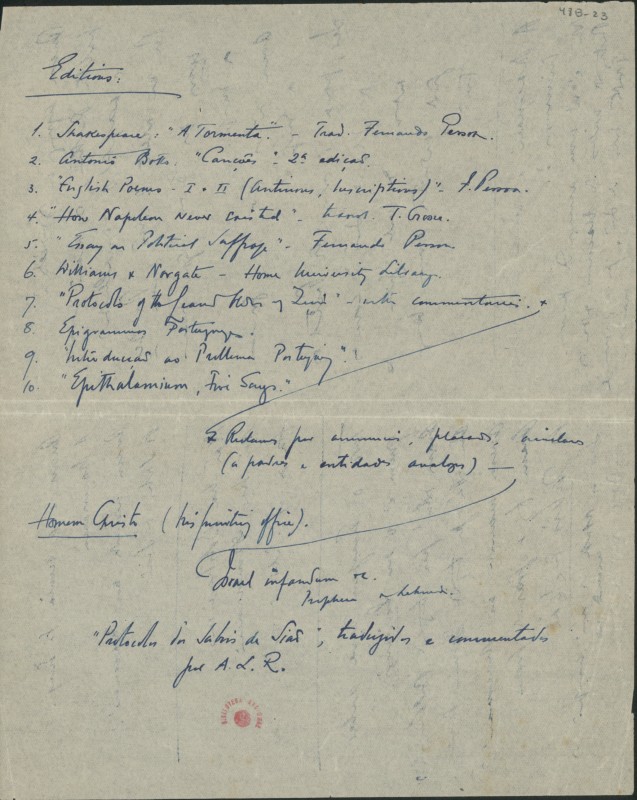 48B-23
Editions:
1. Shakespeare: "A Tormenta". - Trad. Fernando Pessoa.
2. Antonio Botto. "Canções" - 2ª edição.
3. "English Poems - I & II (Antinous, Inscriptions)" - F. Pessoa.
4. "How Napoleon never existed" - transl. T. Crosse.
5. "Essay on Political Suffrage" - Fernando Pessoa.
6. Williams & Norgate - Home University Library.
7. "Protocols of the Grand Elders of Zion" - with commentaries. x
8. Epigrammas Portuguezes.
9. "Introducção ao Problema Portuguez".
10. "Epithalamium, Five Songs."
x Reclames por annuncios, placards, circulares
(a padres e entidades analogas) —
Homem Christo (his printing office).
Israel infandum
"Protocolos dos Sabios de Sião", traduzidos e commentados
por A. L. R.